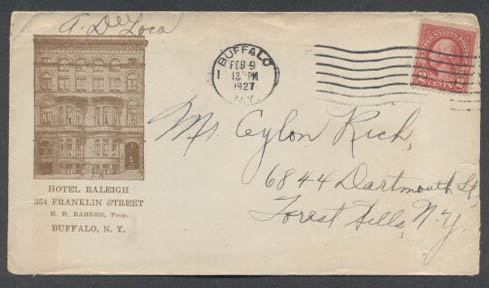 A. De Loca
BUFFALO
FEB 9
12 PM
1927
N.Y.
1
2 CENTS 2
HOTEL RALEIGH
354 FRANKLIN STREET
E. B. BARNES, Prop.
BUFFALO, N. Y.
Mr. Ceylon Rich,
6844 Dartmouth St,
Forest Hills, N.Y.